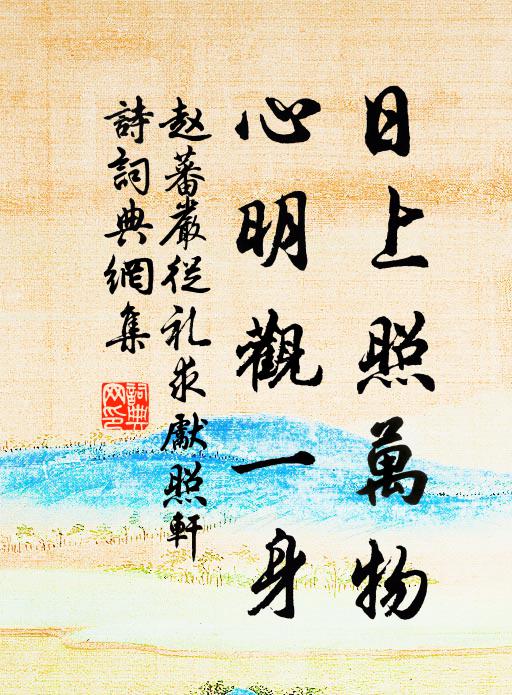 日上照萬物
心明觀一身
赵蕃嚴從礼求獻照軒
詩詞典網集
詞典
网印